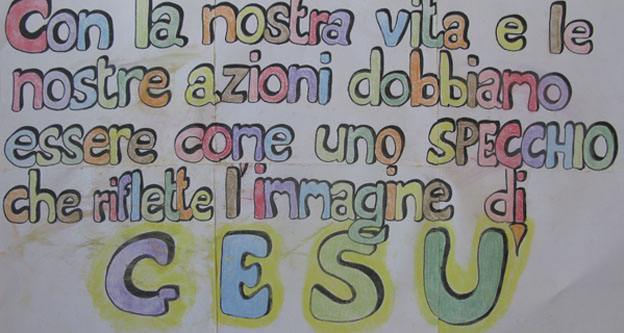 Con la nostra vita e le
nostre azioni dobbiamo
essere come uno SPECCHIO
che riflette l'immagine di
GESU'